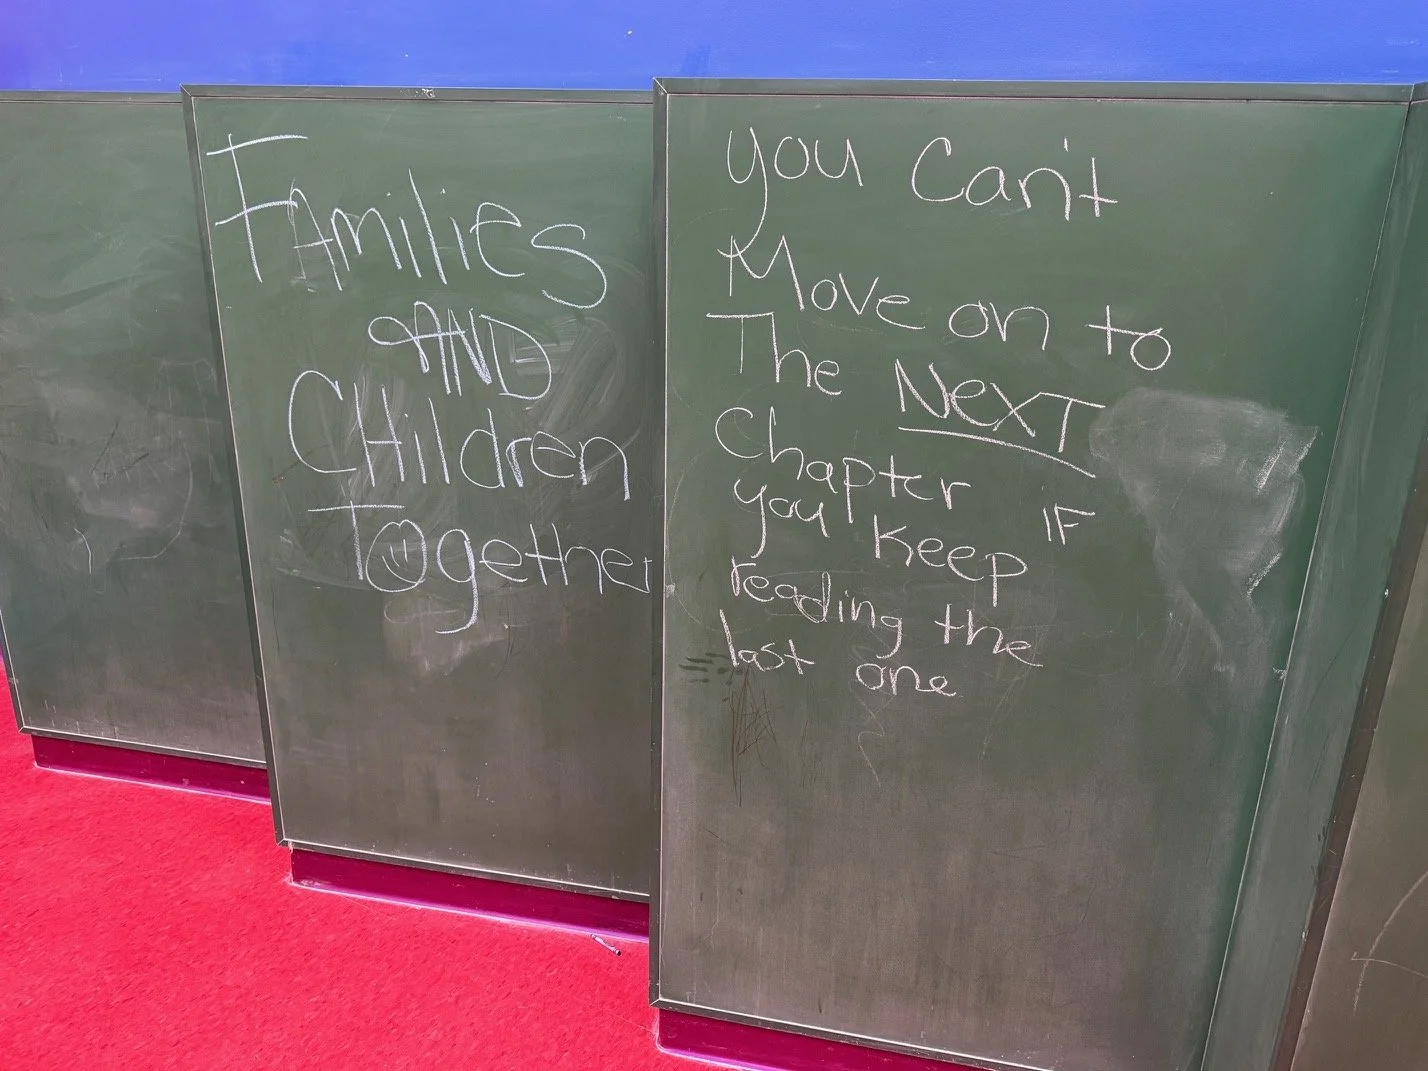 FAmilies
AND
CHildren
Together
you Can't
Move on to
The NEXT
Chapter IF
you keep
reading the
last one